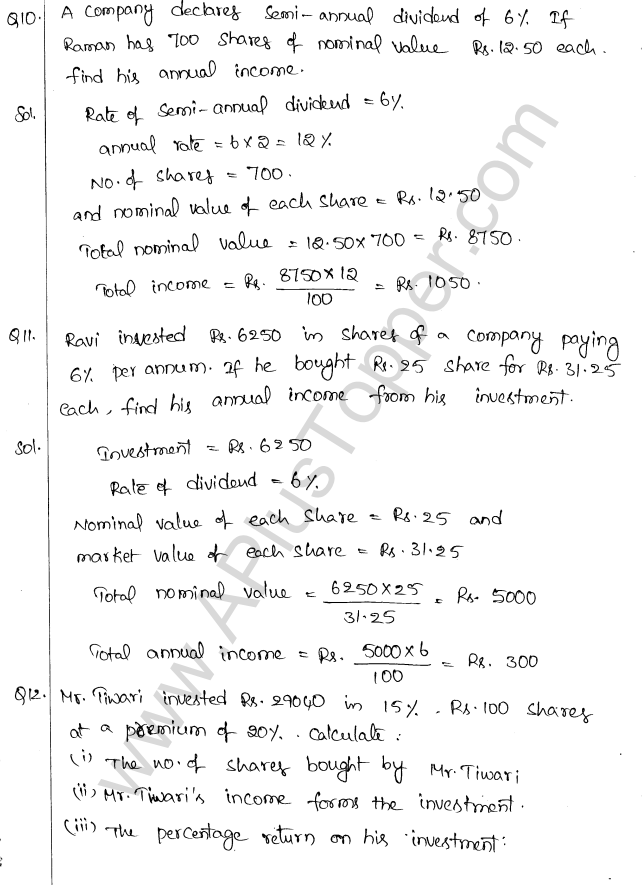 Q10. A company declares semi-annual dividend of 6%. If
Raman has 700 shares of nominal value Rs. 12.50 each.
find his annual income.
Sol. Rate of semi-annual dividend = 6%.
annual rate = 6 x 2 = 12%
No. of shares = 700.
and nominal value of each share = Rs. 12.50
Total nominal value = 12.50 x 700 = Rs. 8750.
Total income = Rs. 8750 x 12 / 100 = Rs. 1050.
Q11. Ravi invested Rs. 6250 in shares of a company paying
6% per annum. If he bought Rs. 25 share for Rs. 31.25
each, find his annual income from his investment.
Sol. Investment = Rs. 6250
Rate of dividend = 6%
Nominal value of each share = Rs. 25 and
market value of each share = Rs. 31.25
Total nominal value = 6250 x 25 / 31.25 = Rs. 5000
Total annual income = Rs. 5000 x 6 / 100 = Rs. 300
Q12. Mr. Tiwari invested Rs. 29040 in 15%. Rs. 100 shares
at a premium of 20%. Calculate:
(i) The no. of shares bought by Mr. Tiwari
(ii) Mr. Tiwari's income forms the investment.
(iii) The percentage return on his investment:
www.APlusTopper.com